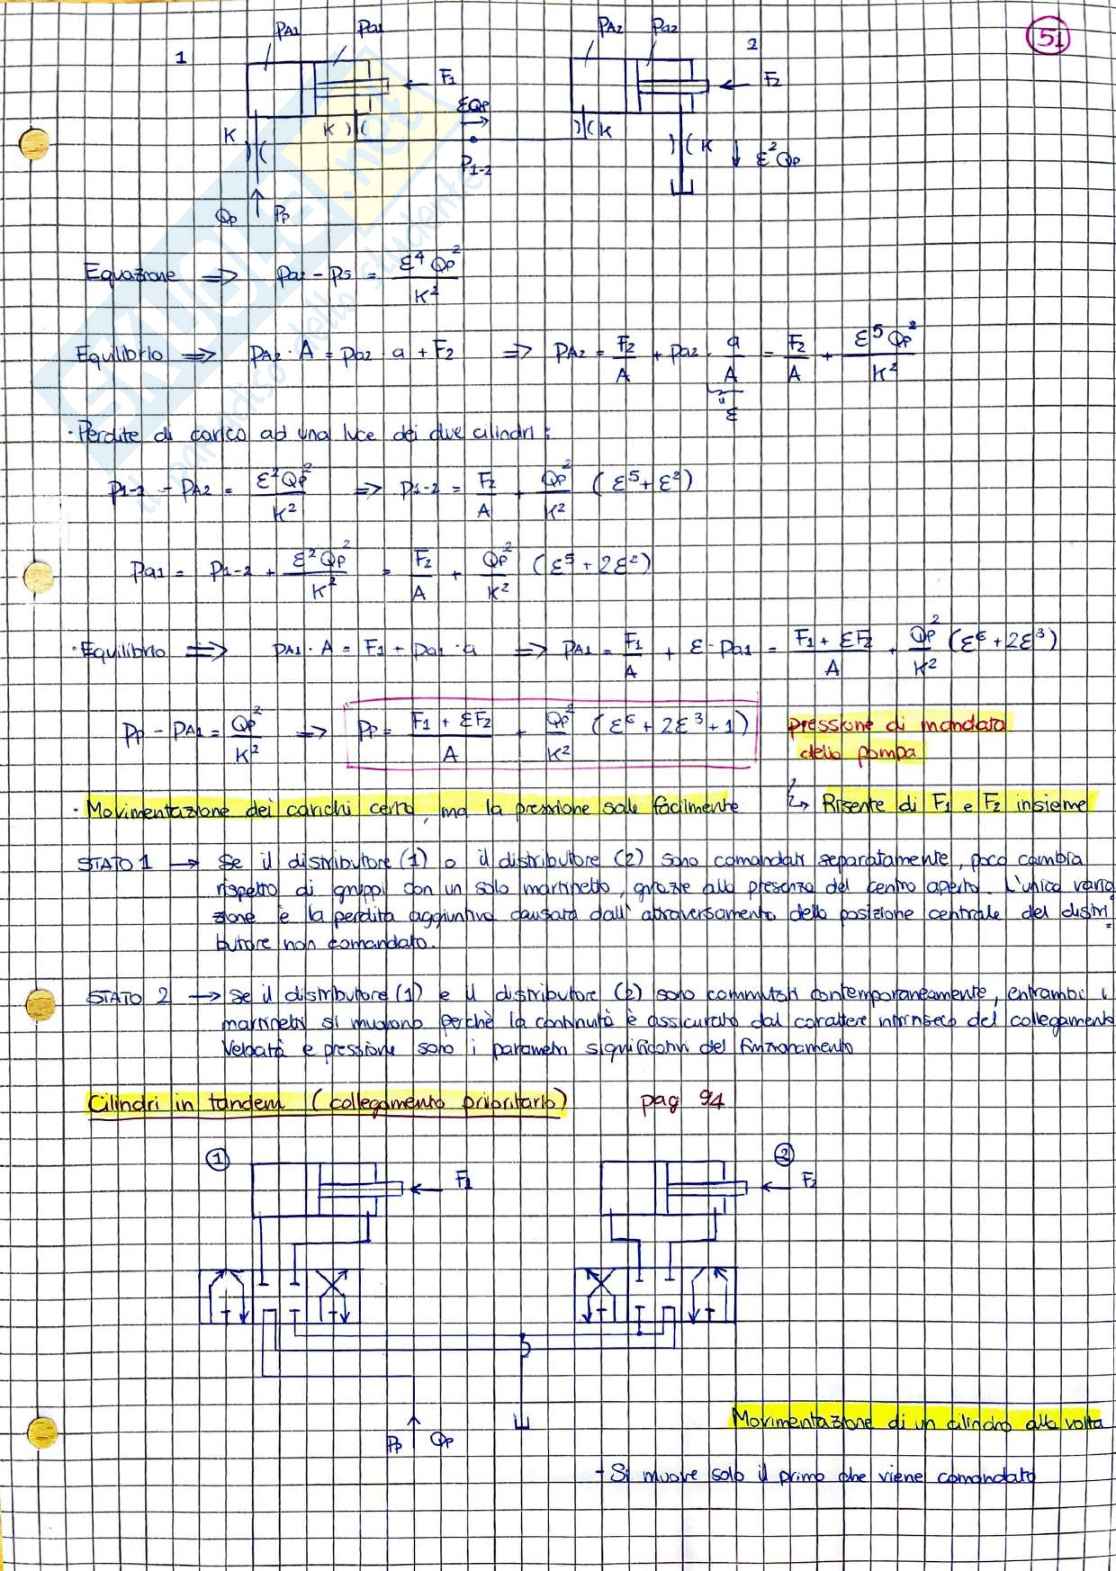 51
PA1 Pa1
PA2 Pa2
1
2
F1
F2
K
K
K
K
εQp
P1-2
ε²Qp
Qp Pp
Equazione ⇒ pa2 - ps = ε⁴Qp² / K²
Equilibrio ⇒ PA2 · A = pa2 · a + F2 ⇒ PA2 = F2/A + pa2 · a/A = F2/A + ε⁵Qp²/K²
ε
· Perdite di carico ad una luce dei due cilindri:
P1-2 - PA2 = ε²Qp²/K² ⇒ P1-2 = F2/A + Qp²/K² (ε⁵+ε²)
Pa1 = P1-2 + ε²Qp²/K² = F2/A + Qp²/K² (ε⁵+2ε²)
· Equilibrio ⇒ PA1 · A = F1 + pa1 · a ⇒ PA1 = F1/A + ε·Pa1 = F1 + εF2/A + Qp²/K² (ε⁶+2ε³)
Pp - PA1 = Qp²/K² ⇒ Pp = F1 + εF2/A + Qp²/K² (ε⁶+2ε³+1) pressione di mandata
della pompa
· Movimentazione dei carichi certa, ma la pressione sale facilmente ↳ Risente di F1 e F2 insieme
STATO 1 → Se il distributore (1) o il distributore (2) sono comandati separatamente, poco cambia
rispetto di gruppi con un solo martinetto, grazie alla presenza del centro aperto. L'unica varia
zione è la perdita aggiuntiva causata dall'attraversamento della posizione centrale del distri
butore non comandato.
STATO 2 → Se il distributore (1) e il distributore (2) sono commutati contemporaneamente, entrambi i
martinetti si muovono perchè la continuità è assicurata dal carattere intrinseco del collegamento
Velocità e pressione sono i parametri significativi del funzionamento
Cilindri in tandem (collegamento prioritario) pag 94
1
2
F1
F2
Pp Qp
Movimentazione di un cilindro alla volta
- Si muove solo il primo che viene comandato